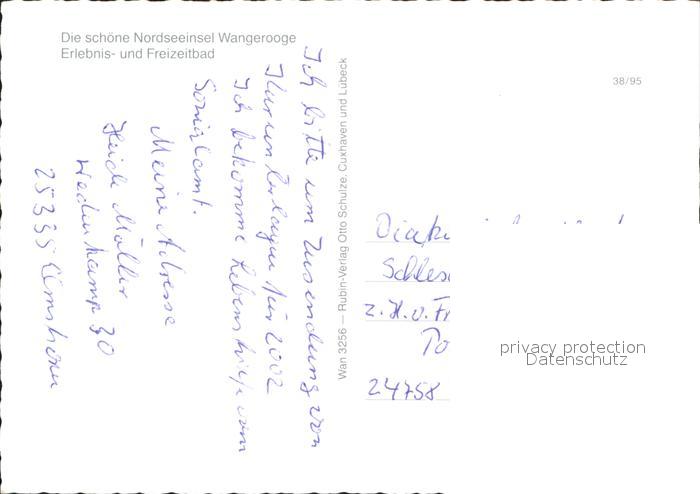 Die schöne Nordseeinsel Wangerooge
Erlebnis- und Freizeitbad
38/95
Wan 3256 — Rubin-Verlag Otto Schulze, Cuxhaven und Lübeck
Ich bitte um Zusendung von
für 2002
Ich bekomme Lebens vom
Sozialamt.
Meine Adresse
Heide Müller
30
25335 Elmshorn
Schles
z.H.v. Fr
24758
privacy protection
Datenschutz